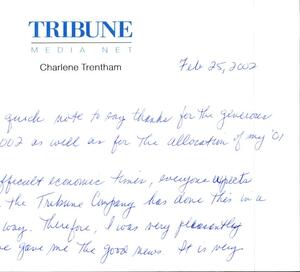 TRIBUNE
MEDIA NET
Charlene Trentham
Feb 25, 2002
quick note to say thanks for the generous
002 as well as for the allocation of my '01
difficult economic times, everyone expects
the Tribune Company has done this in a
way. Therefore, I was very pleasantly
gave me the good news. It is very